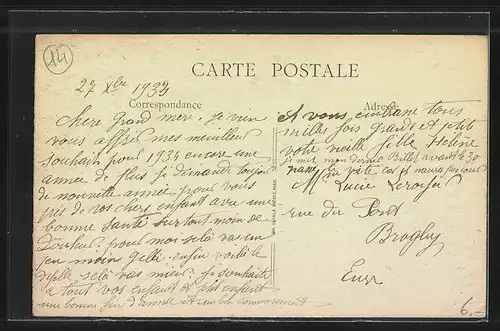 14
CARTE POSTALE
27 Xbre 1933
Correspondance
Adresse
Chere Grand mere, je vien
vous affrir mes meilleur
souhait pour 1934 encore une
année de plus je demande toujour
de nouvelle année pour vous
pres de vos chers enfant avec une
bonne santé surtout moin de
Douleur, pour moi sela vas un
peu moin Gille enfin voila le
sela vas mieu. je souhaite
a tout vos enfant et petit enfant
une bonne fin d'année et
Et vous embrase tous
mille fois grands et petit
votre vieille fille Helene
je met mon dernie Billet avant 6.30
vite car il
Mme Lucie Leroy
rue du Pont
Broglie
Eure
6.-